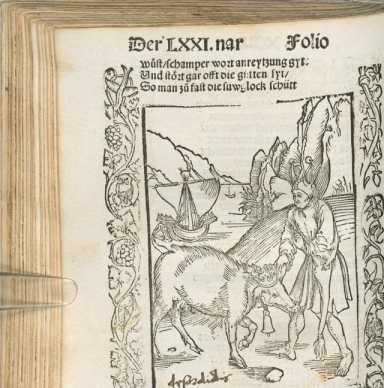 Der LXXI. nar Folio
wüst/schamper wort anreytzung gyt:
Und stört gar offt die gutten syt/
So man zů fast die suw glock schütt